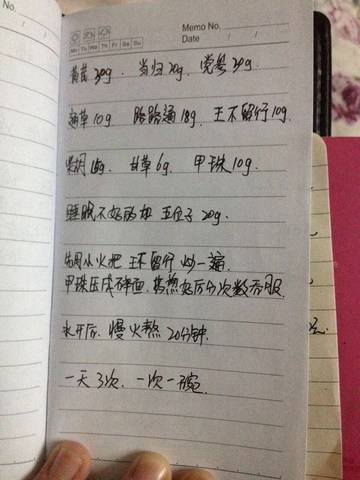 Memo No.
Mo Tu We Th Fr Sa Su
Date / /
黄芪30g. 当归20g. 党参30g.
通草10g 路路通18g. 王不留行10g.
柴胡15g. 甘草6g. 甲珠10g.
睡眠不好的加 五位子 20g.
先用小火把 王不留行 炒一遍.
甲珠压成碎面. 熬好后分次数吞服.
水开后. 慢火熬 20分钟.
一天3次. 一次一碗.